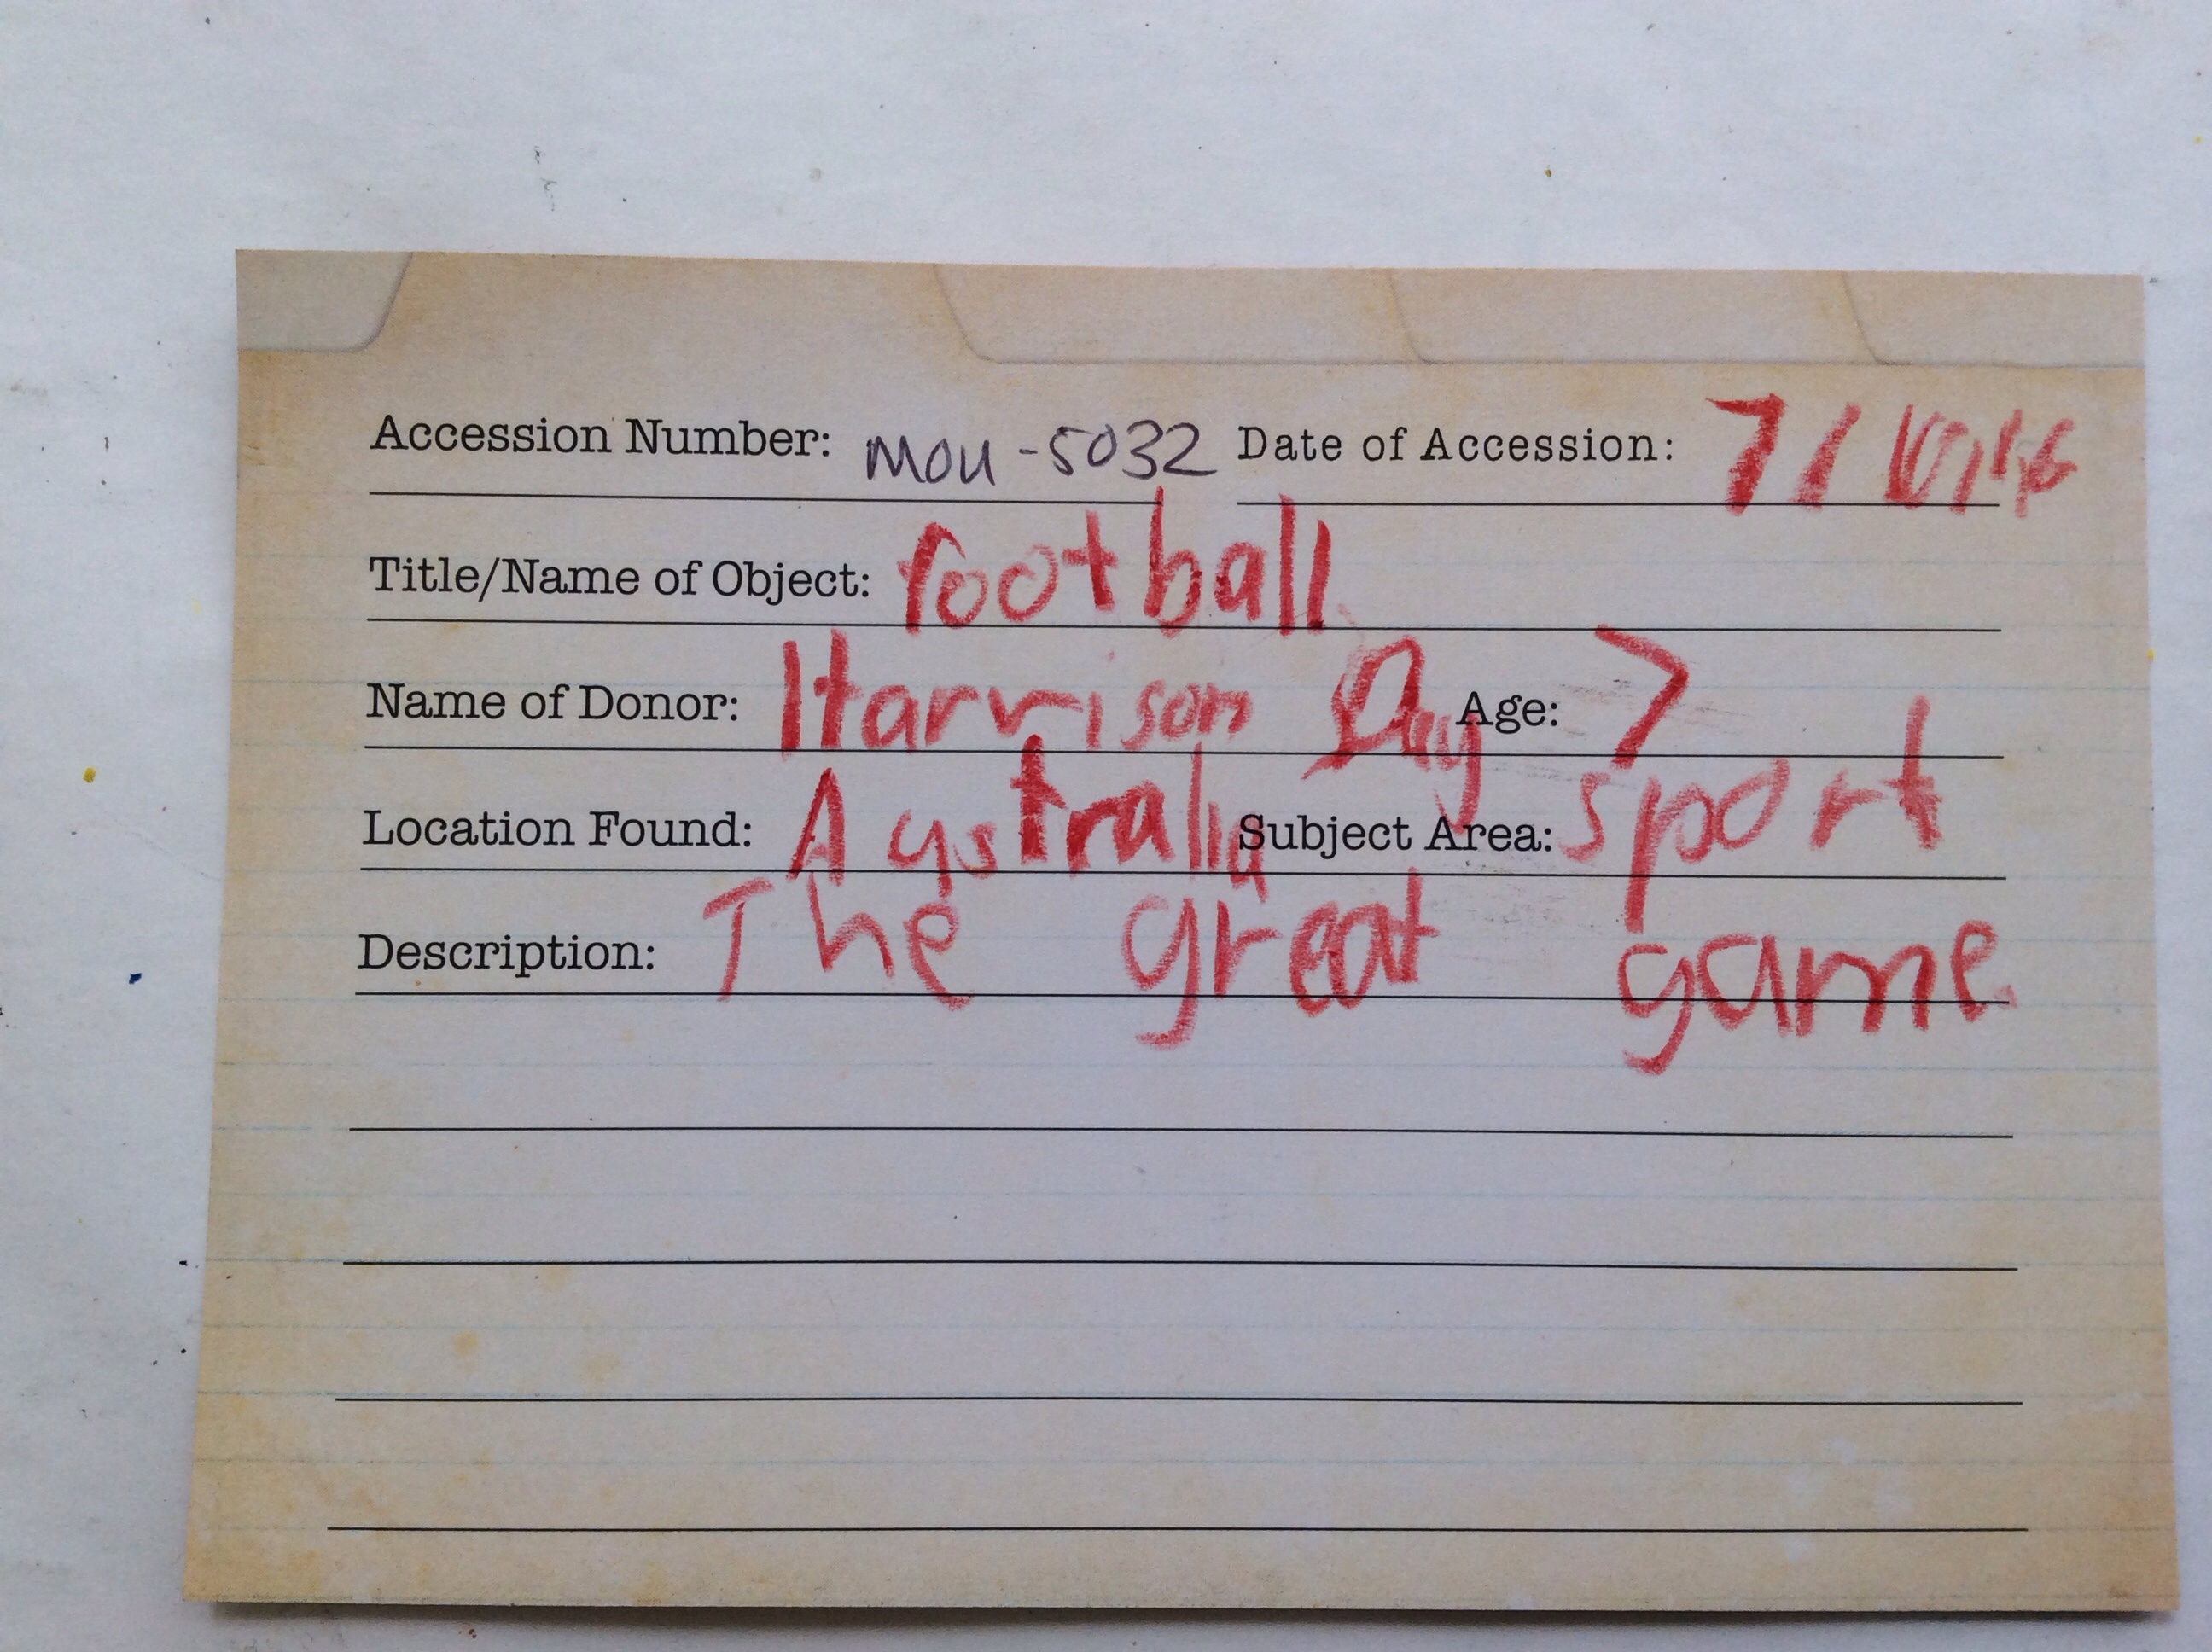 Accession Number: MOU-5032 Date of Accession: 7/
Title/Name of Object: football
Name of Donor: Harrison Day Age: 7
Location Found: Australia Subject Area: sport
Description: The great game.